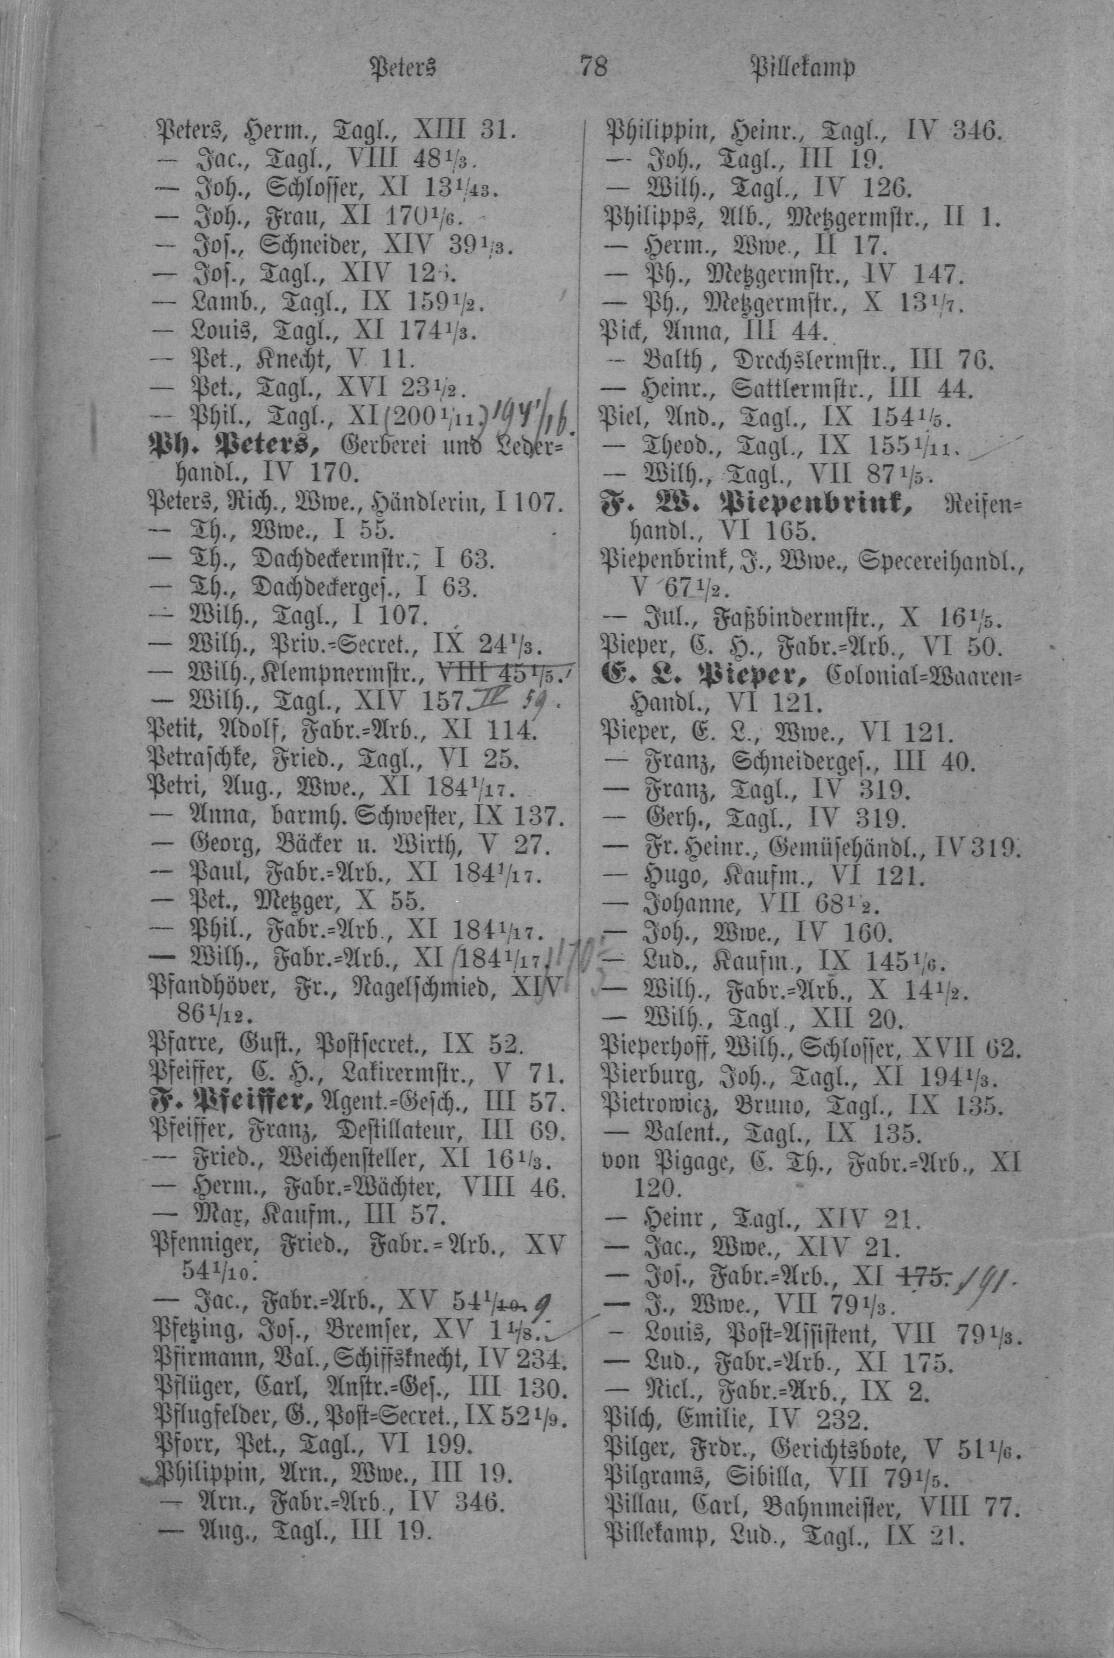 Peters 78 Pillekamp
Peters, Herm., Tagl., XIII 31.
— Jac., Tagl., VIII 48 1/3.
— Joh., Schlosser, XI 13 1/43.
— Joh., Frau, XI 170 1/6.
— Jos., Schneider, XIV 39 1/3.
— Jos., Tagl., XIV 126.
— Lamb., Tagl., IX 159 1/2.
— Louis, Tagl., XI 174 1/3.
— Pet., Knecht, V 11.
— Pet., Tagl., XVI 23 1/2.
— Phil., Tagl., XI (200 1/11.) 194 1/16.
Ph. Peters, Gerberei und Leder=
handl., IV 170.
Peters, Rich., Wwe., Händlerin, I 107.
— Th., Wwe., I 55.
— Th., Dachdeckermstr., I 63.
— Th., Dachdeckerges., I 63.
— Wilh., Tagl., I 107.
— Wilh., Priv.=Secret., IX 24 1/3.
— Wilh., Klempnermstr., VIII 45 1/5.
— Wilh., Tagl., XIV 157. IV 59.
Petit, Adolf, Fabr.=Arb., XI 114.
Petraschke, Fried., Tagl., VI 25.
Petri, Aug., Wwe., XI 184 1/17.
— Anna, barmh. Schwester, IX 137.
— Georg, Bäcker u. Wirth, V 27.
— Paul, Fabr.=Arb., XI 184 1/17.
— Pet., Metzger, X 55.
— Phil., Fabr.=Arb., XI 184 1/17.
— Wilh., Fabr.=Arb., XI (184 1/17.) 170
Pfandhöver, Fr., Nagelschmied, XIV
86 1/12.
Pfarre, Gust., Postsecret., IX 52.
Pfeiffer, C. H., Lakirermstr., V 71.
F. Pfeiffer, Agent.=Gesch., III 57.
Pfeiffer, Franz, Destillateur, III 69.
— Fried., Weichensteller, XI 16 1/3.
— Herm., Fabr.=Wächter, VIII 46.
— Max, Kaufm., III 57.
Pfenniger, Fried., Fabr.=Arb., XV
54 1/10.
— Jac., Fabr.=Arb., XV 54 1/10. 9
Pfetzing, Jos., Bremser, XV 1 1/8.
Pfirmann, Val., Schiffsknecht, IV 234.
Pflüger, Carl, Anstr.=Ges., III 130.
Pflugfelder, G., Post=Secret., IX 52 1/9.
Pforr, Pet., Tagl., VI 199.
Philippin, Arn., Wwe., III 19.
— Arn., Fabr.=Arb., IV 346.
— Aug., Tagl., III 19.
Philippin, Heinr., Tagl., IV 346.
— Joh., Tagl., III 19.
— Wilh., Tagl., IV 126.
Philipps, Alb., Metzgermstr., II 1.
— Herm., Wwe., II 17.
— Ph., Metzgermstr., IV 147.
— Ph., Metzgermstr., X 13 1/7.
Pick, Anna, III 44.
— Balth, Drechslermstr., III 76.
— Heinr., Sattlermstr., III 44.
Piel, And., Tagl., IX 154 1/5.
— Theod., Tagl., IX 155 1/11.
— Wilh., Tagl., VII 87 1/5.
F. W. Piepenbrink, Reisen=
handl., VI 165.
Piepenbrink, J., Wwe., Specereihandl.,
V 67 1/2.
— Jul., Faßbindermstr., X 16 1/5.
Pieper, C. H., Fabr.=Arb., VI 50.
E. L. Pieper, Colonial=Waaren=
Handl., VI 121.
Pieper, E. L., Wwe., VI 121.
— Franz, Schneiderges., III 40.
— Franz, Tagl., IV 319.
— Gerh., Tagl., IV 319.
— Fr. Heinr., Gemüsehändl., IV 319.
— Hugo, Kaufm., VI 121.
— Johanne, VII 68 1/2.
— Joh., Wwe., IV 160.
— Lud., Kaufm., IX 145 1/6.
— Wilh., Fabr.=Arb., X 14 1/2.
— Wilh., Tagl., XII 20.
Pieperhoff, Wilh., Schlosser, XVII 62.
Pierburg, Joh., Tagl., XI 194 1/3.
Pietrowicz, Bruno, Tagl., IX 135.
— Valent., Tagl., IX 135.
von Pigage, C. Th., Fabr.=Arb., XI
120.
— Heinr, Tagl., XIV 21.
— Jac., Wwe., XIV 21.
— Jos., Fabr.=Arb., XI 175. 191.
— J., Wwe., VII 79 1/3.
— Louis, Post=Assistent, VII 79 1/3.
— Lud., Fabr.=Arb., XI 175.
— Nicl., Fabr.=Arb., IX 2.
Pilch, Emilie, IV 232.
Pilger, Frdr., Gerichtsbote, V 51 1/6.
Pilgrams, Sibilla, VII 79 1/5.
Pillau, Carl, Bahnmeister, VIII 77.
Pillekamp, Lud., Tagl., IX 21.